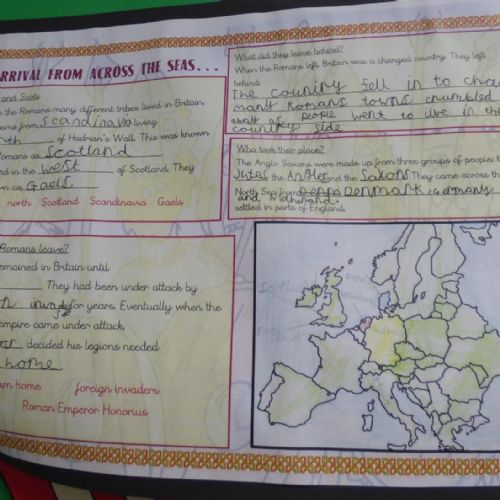 ARRIVAL FROM ACROSS THE SEAS...
and Scots
the Romans many different tribes lived in Britain.
came from Scandinavia living
of Hadrian's Wall. This was known
Romans as Scotland
ed in the west of Scotland. They
n as Gaels
north Scotland Scandinavia Gaels
Romans leave?
remained in Britain until
They had been under attack by
for years. Eventually when the
empire came under attack,
decided his legions needed
home
home foreign invaders
Roman Emperor Honorius
What did they leave behind?
When the Romans left, Britain was a changed country. They left
behind:
The country fell in to cha
many Romans towns crumbled
away after people went to live in the
country side
Who took their place?
The Anglo Saxons were made up from three groups of peoples t
Jutes the Angles and the Saxons They came across th
North Sea from Denmark Germany
and
settled in parts of England.